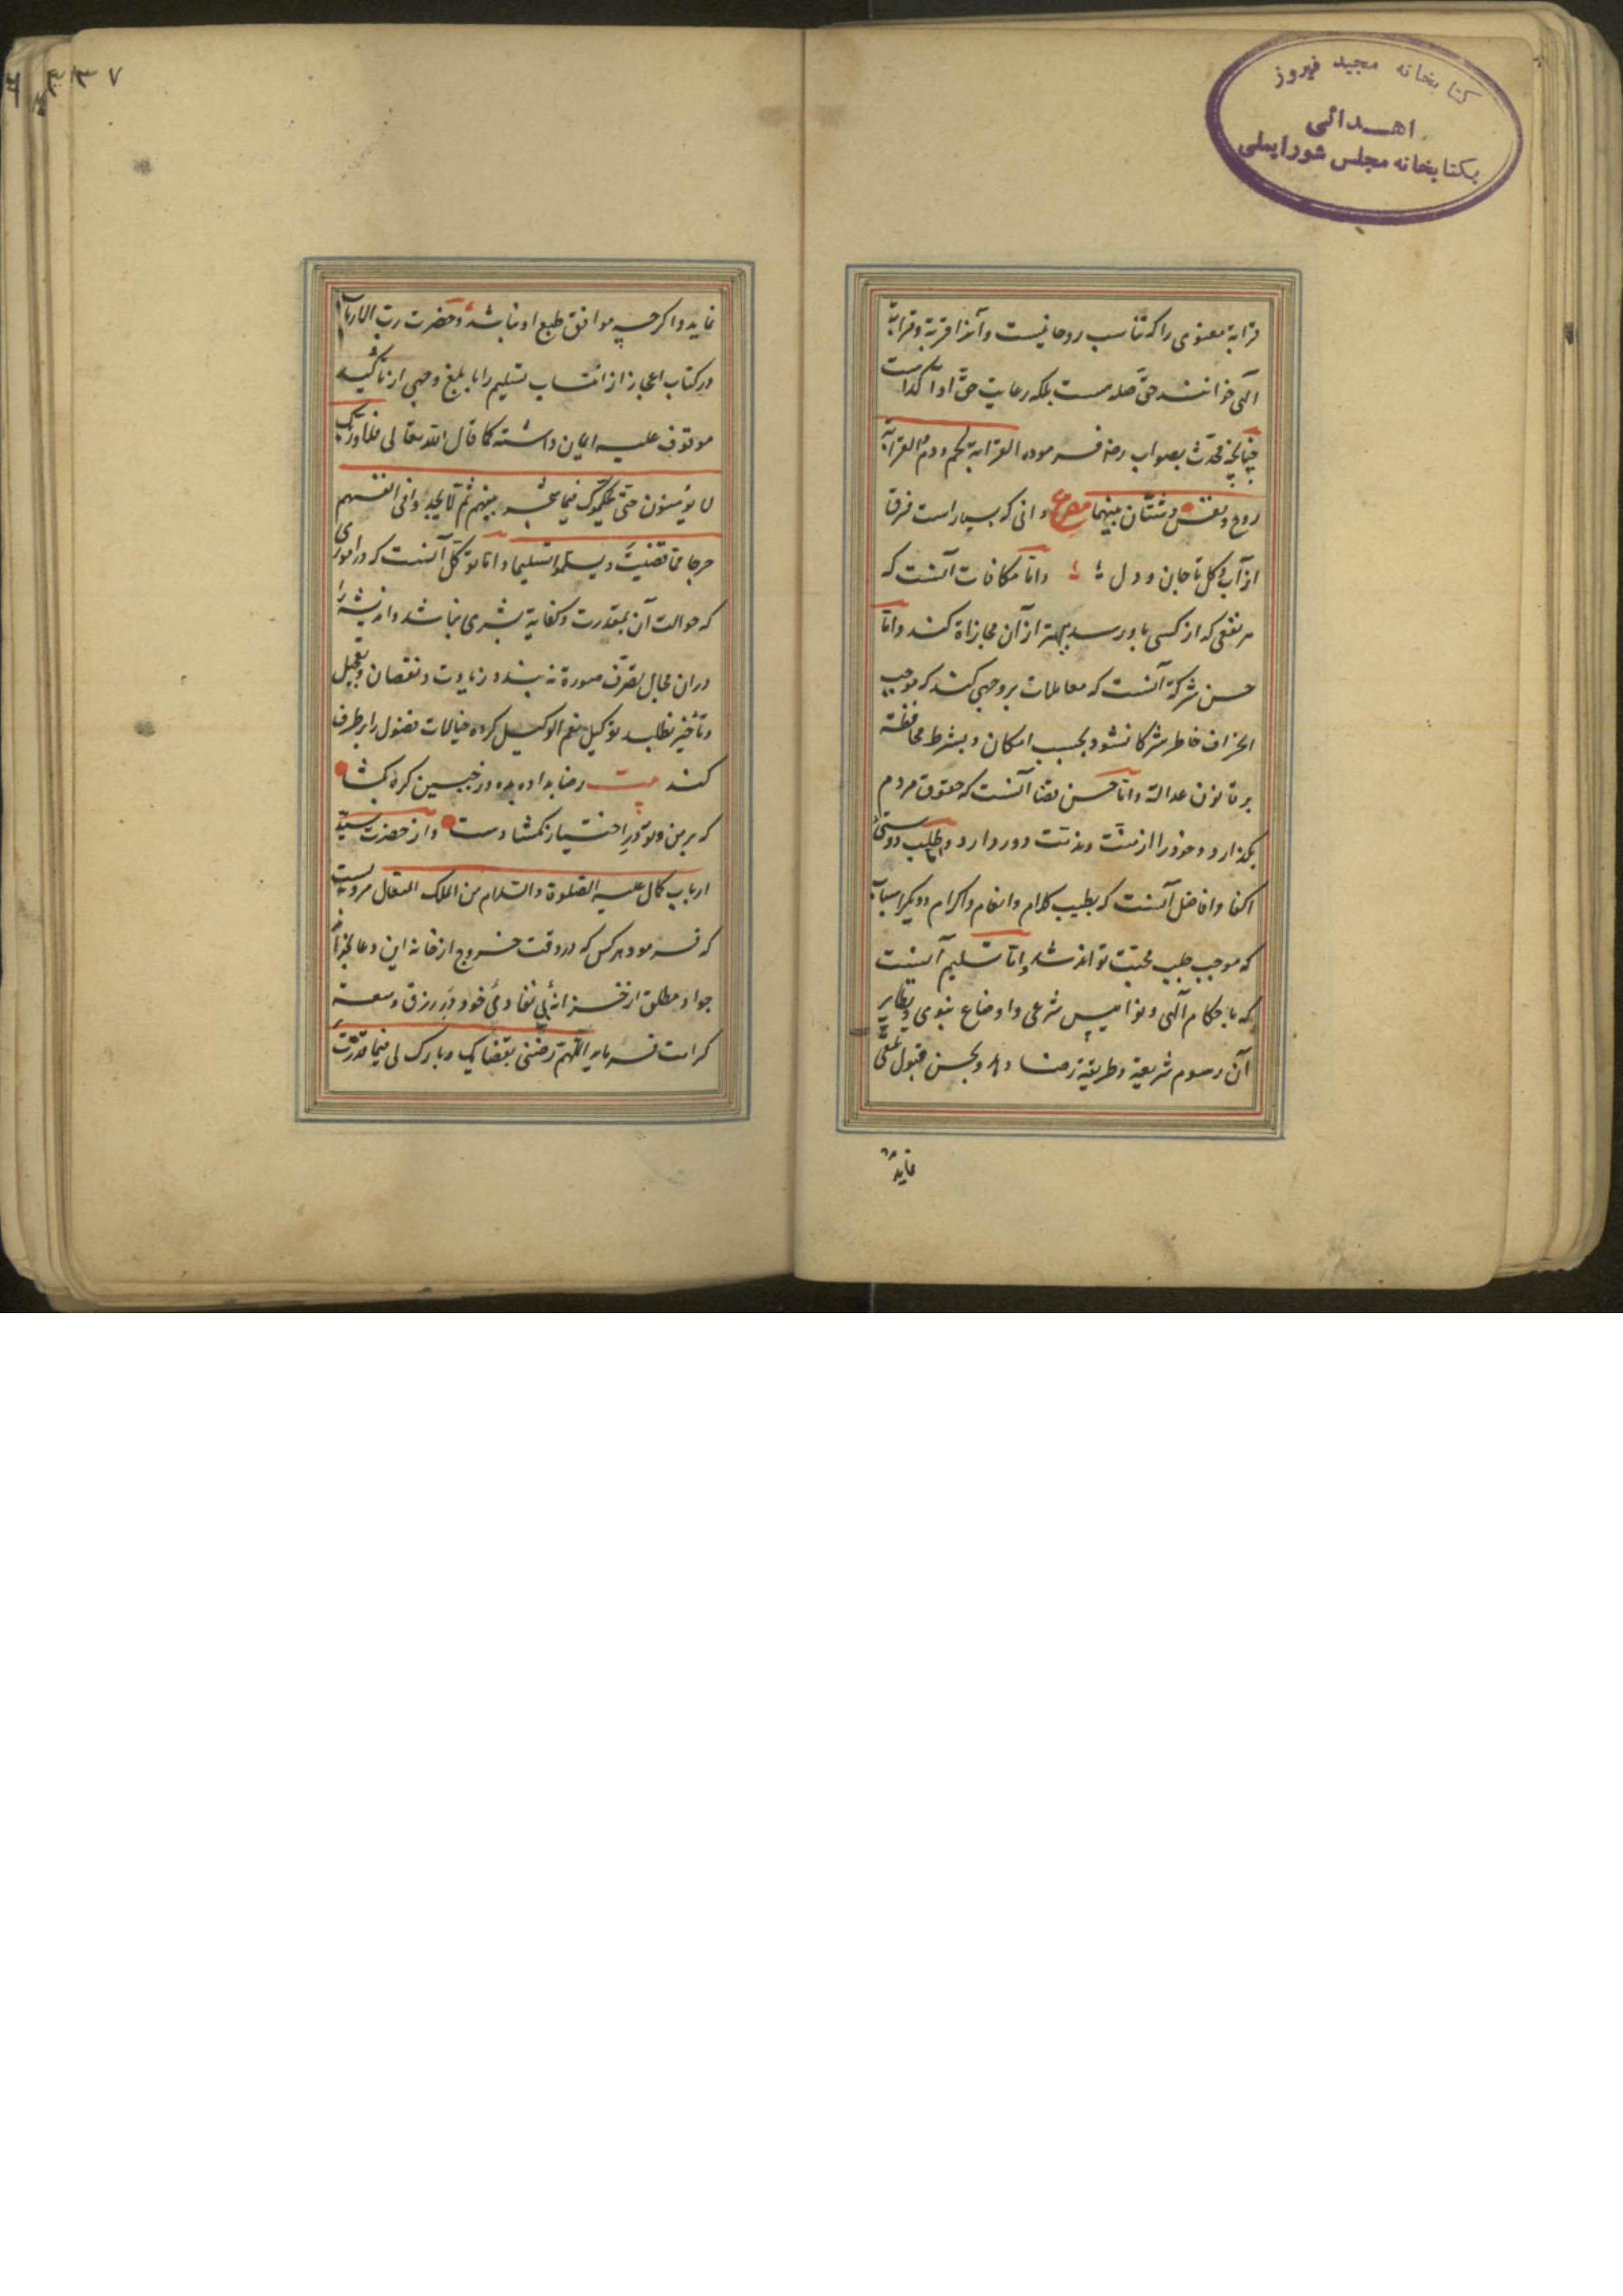 کتابخانه مجید فیروز
اهدائی
بکتابخانه مجلس شورایملی
قرابة معنوی را که تناسب روحانیست و آنرا قربة و قرابة
آلهی خوانند حقّ صله هست بلکه رعایت حقّ او آکد است
چنانچه محدّث بصواب رضه فرموده القرابة لحم و دم و القرابة
روح و نفس و شتّان بینهما مصرع دانی که بسیار است فرق
از آب و کل تا جان و دل و امّا مکافات آنست که
هر نفعی که از کسی باو رسد بهتر از آن مجازاة کند و امّا
حسن شرکة آنست که معاملات بر وجهی کند که موجب
انحراف خاطر شرکا نشود بحسب امکان و بشرط محافظة
بر قانون عدالة و امّا حسن قضا آنست که حقوق مردم
بکذارد و خود را از منّت و مذمّت دور دارد و طلب دوستی
اکفا و افاضل آنست که بطیب کلام و انعام و اکرام و دیکر اسباب
که موجب جلب محبّت تواند شد و امّا تسلیم آنست
که باحکام آلهی و نوامیس شرعی و اوضاع نبوی و نظایر
آن رسوم شریعة و طریقة رضا دهد و بحسن قبول تلقّی
نماید
۷۳۲
نماید و اکرچه موافق طبع او نباشد و حضرت ربّ الارباب
در کتاب اعجاز از انتساب تسلیم را بابلغ وجهی از تأکید
موقوف علیه ایمان داشته کما قال الله تعالی فلا و ربّک
لا یؤمنون حتّی یحکّموک فیما شجر بینهم ثمّ لا یجدوا فی انفسهم
حرجا ممّا قضیت و یسلّموا تسلیما و امّا توکّل آنست که در اموری
که حوالت آن بمقدرت و کفایة بشری نباشد و اندیشه را
دران مجال تصرّف صورة نه بندد زیادت و نقصان و تعجیل
و تأخیر نطلبد توکیل بنعم الوکیل کرده خیالات فضول را بر طرف
کند بیت رضا بداده بده وز جبین کره بکشا
که بر من و تو در اختیار نکشادست و از حضرت سیّد
ارباب کمال علیه الصلوة و السلام من الملک المتعال مرویست
که فرمود هرکس که در وقت خروج از خانه این دعا بخواند
جواد مطلق از خزانهٔ بی نفاد خود در رزق و سعة
کرامت فرماید اللّهمّ رضّنی بقضایک و بارک لی فیما قدّرت